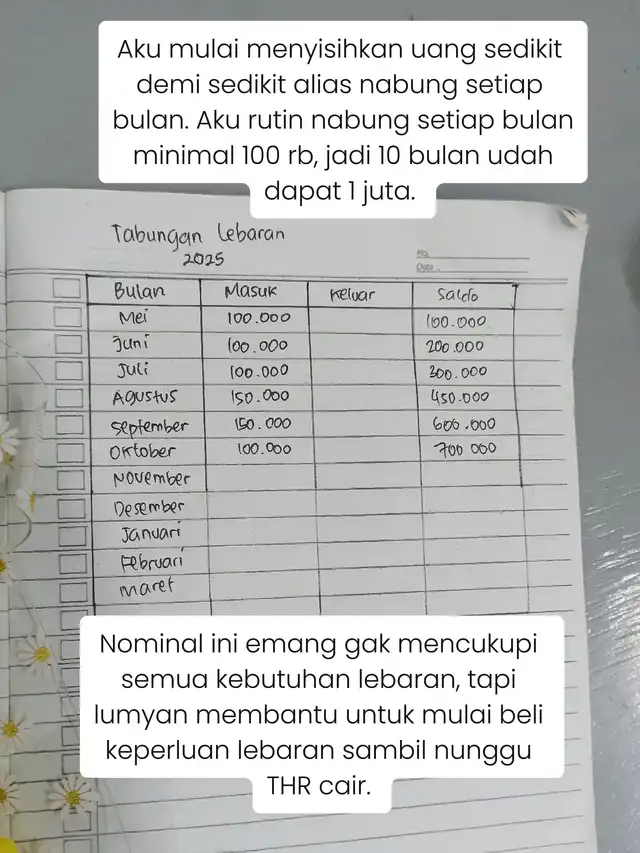 Aku mulai menyisihkan uang sedikit
demi sedikit alias nabung setiap
bulan. Aku rutin nabung setiap bulan
minimal 100 rb, jadi 10 bulan udah
dapat 1 juta.
Tabungan Lebaran
2025
No.
Date :
Bulan Masuk Keluar Saldo
Mei 100.000 100.000
Juni 100.000 200.000
Juli 100.000 300.000
Agustus 150.000 450.000
September 150.000 600.000
Oktober 100.000 700 000
November
Desember
Januari
Februari
Maret
Nominal ini emang gak mencukupi
semua kebutuhan lebaran, tapi
lumyan membantu untuk mulai beli
keperluan lebaran sambil nunggu
THR cair.